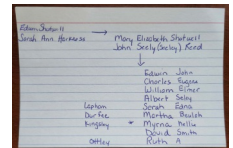 Edwin Shotwell
Sarah Ann Harkness
Mary Elizabeth Shotwell
John Seely (Seeley) Reed
Edwin John
Charles Eugene
William Elmer
Albert Seley
Lapham Sarah Edna
Durfee Martha Beulah
* Myrna Nellie
David Smith
Ottley Ruth A